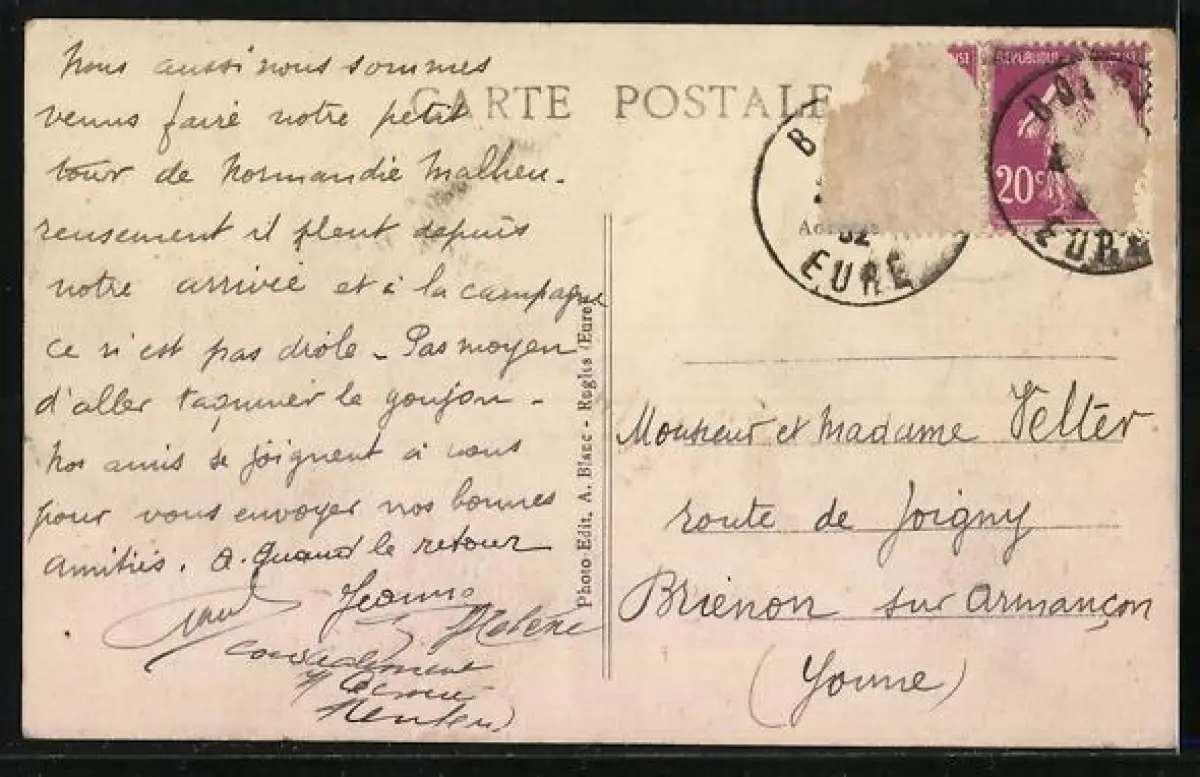 Nous aussi nous sommes
venus faire notre petit
tour de Normandie Malheu-
reusement il pleut depuis
notre arrivée et à la campagne
ce n'est pas drôle - Pas moyen
d'aller taquiner le goujon -
Nos amis se joignent à nous
pour vous envoyer nos bonnes
amitiés. A quand le retour
Jeanne
Paul
Hélène
CARTE POSTALE
Photo-Edit. A. Blanc - Rugles (Eure)
RÉPUBLIQUE
20c
EURE
32
EURE
Monsieur et Madame Velter
route de Joigny
Brienon sur Armançon
(Yonne)